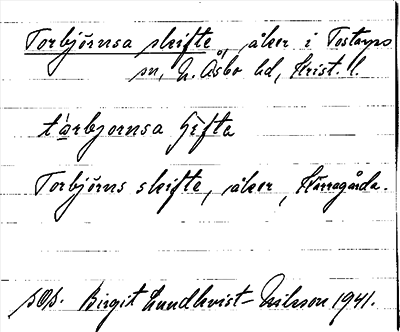 Torbjörnsa skifte, åker i Tostarps
sn, N. Åsbo hd, Krist. l.
tårbjornsa
Torbjörns skifte, åker, Härragårda.
sop. Birgit Lundkvist-Nilsson 1941.